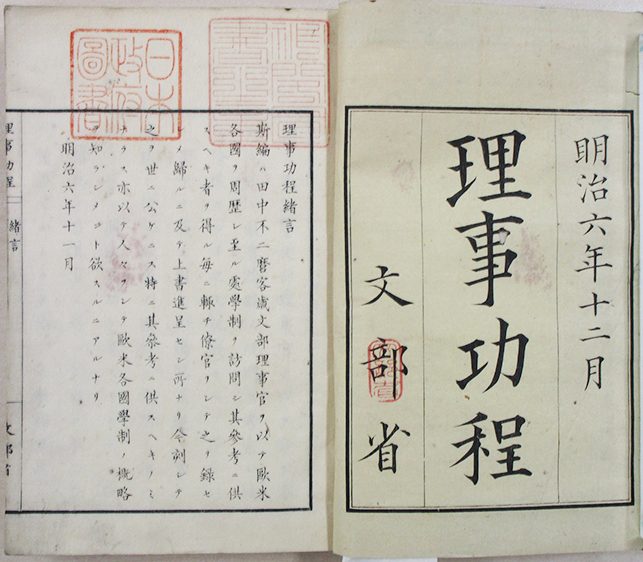 明治六年十二月
理事功程
文部省
理事功程緒言
斯編ハ田中不二麿客歳文部理事官ヲ以テ歐米
各國ヲ周歷シ至ル處學制ヲ訪問シ其參考ニ供
スヘキ者ヲ得ル毎ニ輙チ僚官ヲシテ之ヲ録セ
シメ歸ルニ及テ上書進呈セシ所ナリ今刻シテ
之ヲ世ニ公ケニス特ニ其參考ニ供スヘキノミ
ナラス亦以テ人々ヲシテ歐米各國學制ノ概略
ヲ知ラシメンコトヲ欲スルニアルナリ
明治六年十一月
理事功程
緒言
文部省
日本
政府
圖書